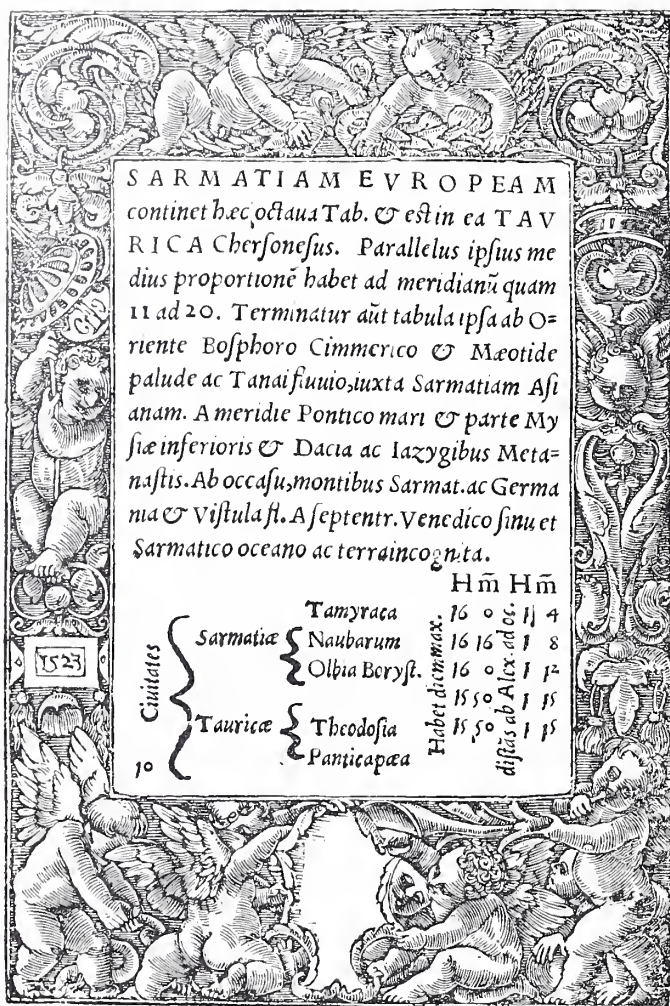 SARMATIAM EVROPEAM
continet hæc octaua Tab. & est in ea TAV
RICA Chersonesus. Parallelus ipsius me
dius proportionẽ habet ad meridianũ quam
11 ad 20. Terminatur aũt tabula ipsa ab O=
riente Bosphoro Cimmerico & Mæotide
palude ac Tanai fluuio, iuxta Sarmatiam Asi
anam. A meridie Pontico mari & parte My
siæ inferioris & Dacia ac Iazygibus Meta=
nastis. Ab occasu, montibus Sarmat. ac Germa
nia & Vistula fl. A septentr. Venedico sinu et
Sarmatico oceano ac terra incognita.
H m̃ H m̃
Ciuitates
Sarmatiæ
Tamyraca 16 0 1 4
Naubarum 16 16 1 8
Olbia Boryst. 16 0 1 12
Tauricæ
Theodosia 15 50 1 15
Panticapæa 15 50 1 15
Habet diem max.
distãs ab Alex. ad oc.
10
1523